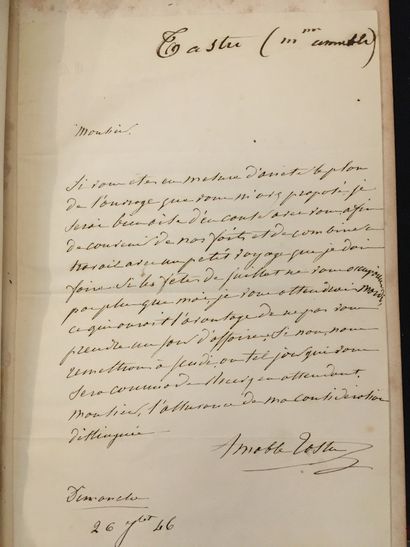 Tastu (Mme amable)
Monsieur,
Si vous êtes en mesure d'arrêter le plan
de l'ouvrage que vous m'avez proposé je
serai bien aise d'en causer avec vous afin
de convenir de nos faits et de combiner ce
travail avec un petit voyage que je dois
faire. Si les fêtes de juillet ne vous occupent
pas plus que moi, je vous attendrai mardi,
ce qui aurait l'avantage de ne pas vous
prendre un jour d'affaires; Si non, nous
remettrons à jeudi ou tel jour qui vous
sera commode. Recevez en attendant,
monsieur, l'assurance de ma considération
distinguée
Amable Tastu
Dimanche
26 46